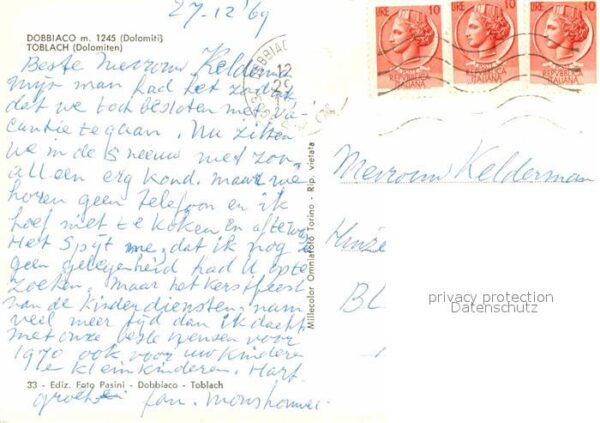 27-12'69
DOBBIACO m. 1245 (Dolomiti)
TOBLACH (Dolomiten)
Beste Mevrouw Kelderman
mijn man had het zo druk
dat we toch besloten met va-
cantie te gaan. Nu zitten
we in de sneeuw met zon,
alleen erg koud. maar we
horen geen telefoon en ik
hoef niet te koken en afte
Het spijt me, dat ik nog
geen gelegenheid had U opte
zoeken. Maar het kerstfeest
van de kinderdiensten nam
veel meer tijd dan ik dacht
met onze beste wensen voor
1970 ook voor uw kinderen
en kleinkinderen. Hart.
groeten fam.
33 - Ediz. Foto Pasini - Dobbiaco - Toblach
Millecolor Omniafoto Torino - Rip. vietata
LIRE 10
REPVBBLICA
ITALIANA
LIRE 10
REPVBBLICA
ITALIANA
LIRE 10
REPVBBLICA
ITALIANA
Mevrouw Kelderman
BL
privacy protection
Datenschutz